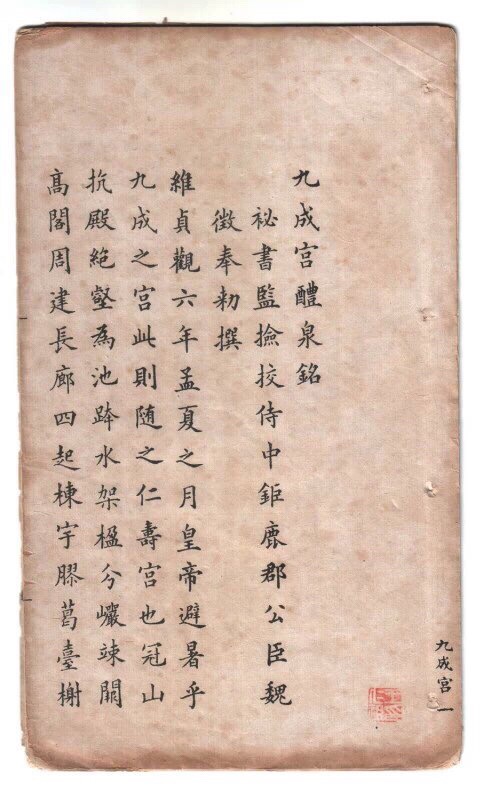 九成宮醴泉銘
秘書監撿挍侍中鉅鹿郡公臣魏
徵奉勑撰
維貞觀六年孟夏之月皇帝避暑乎
九成之宮此則随之仁壽宮也冠山
抗殿絶壑為池跨水架楹分巗竦闕
高閣周建長廊四起棟宇膠葛臺榭
九成宮 一